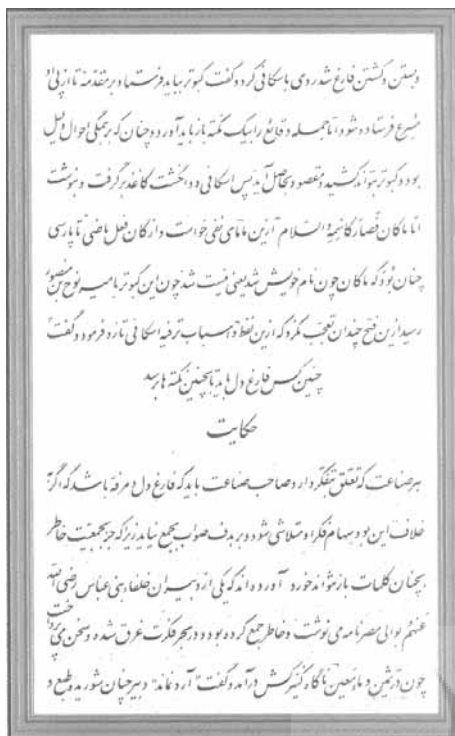 و بستن و کشتن فارغ شد روی باسکافی کرد و گفت کبوتر بباید فرستاد بر مقدمه تا از پی او
مسرع فرستاده شود اما جمله وقایع را بیک نکته باز باید آورد چنان که بر همگی احوال دلیل
بود و کبوتر بتواند کشید و مقصود بحاصل آید پس اسکافی دو انگشت کاغذ برگرفت و بنوشت
اما ماکان فصار کاسمه و السلام ازین ما مای نفی خواست و از کان فعل ماضی تا پارسی
چنان بود که ماکان چون نام خویش شد یعنی نیست شد چون این کبوتر بامیر نوح بن منصور
رسید ازین فتح چندان تعجب نکرد که ازین لفظ و اسباب ترفیه اسکافی تازه فرمود و گفت
چنین کس فارغ دل باید تا بچنین نکته ها برسد
حکایت
هر صناعت که تعلق بتفکر دارد صاحب صناعت باید که فارغ دل و مرفه باشد که اگر
خلاف این بود سهام فکر او متلاشی شود و بر هدف صواب بجمع نیاید زیرا که جز بجمعیت خاطر
بچنان کلمات باز نتواند خورد آورده اند که یکی از دبیران خلفاء بنی عباس رضی الله
عنهم بوالی مصر نامه ی نوشت و خاطر جمع کرده بود و در بحر فکرت غرق شده و سخن می پرداخت
چون در ثمین و ماء معین ناگاه کنیزکش درآمد و گفت آرد نماند دبیر چنان شوریده طبع و